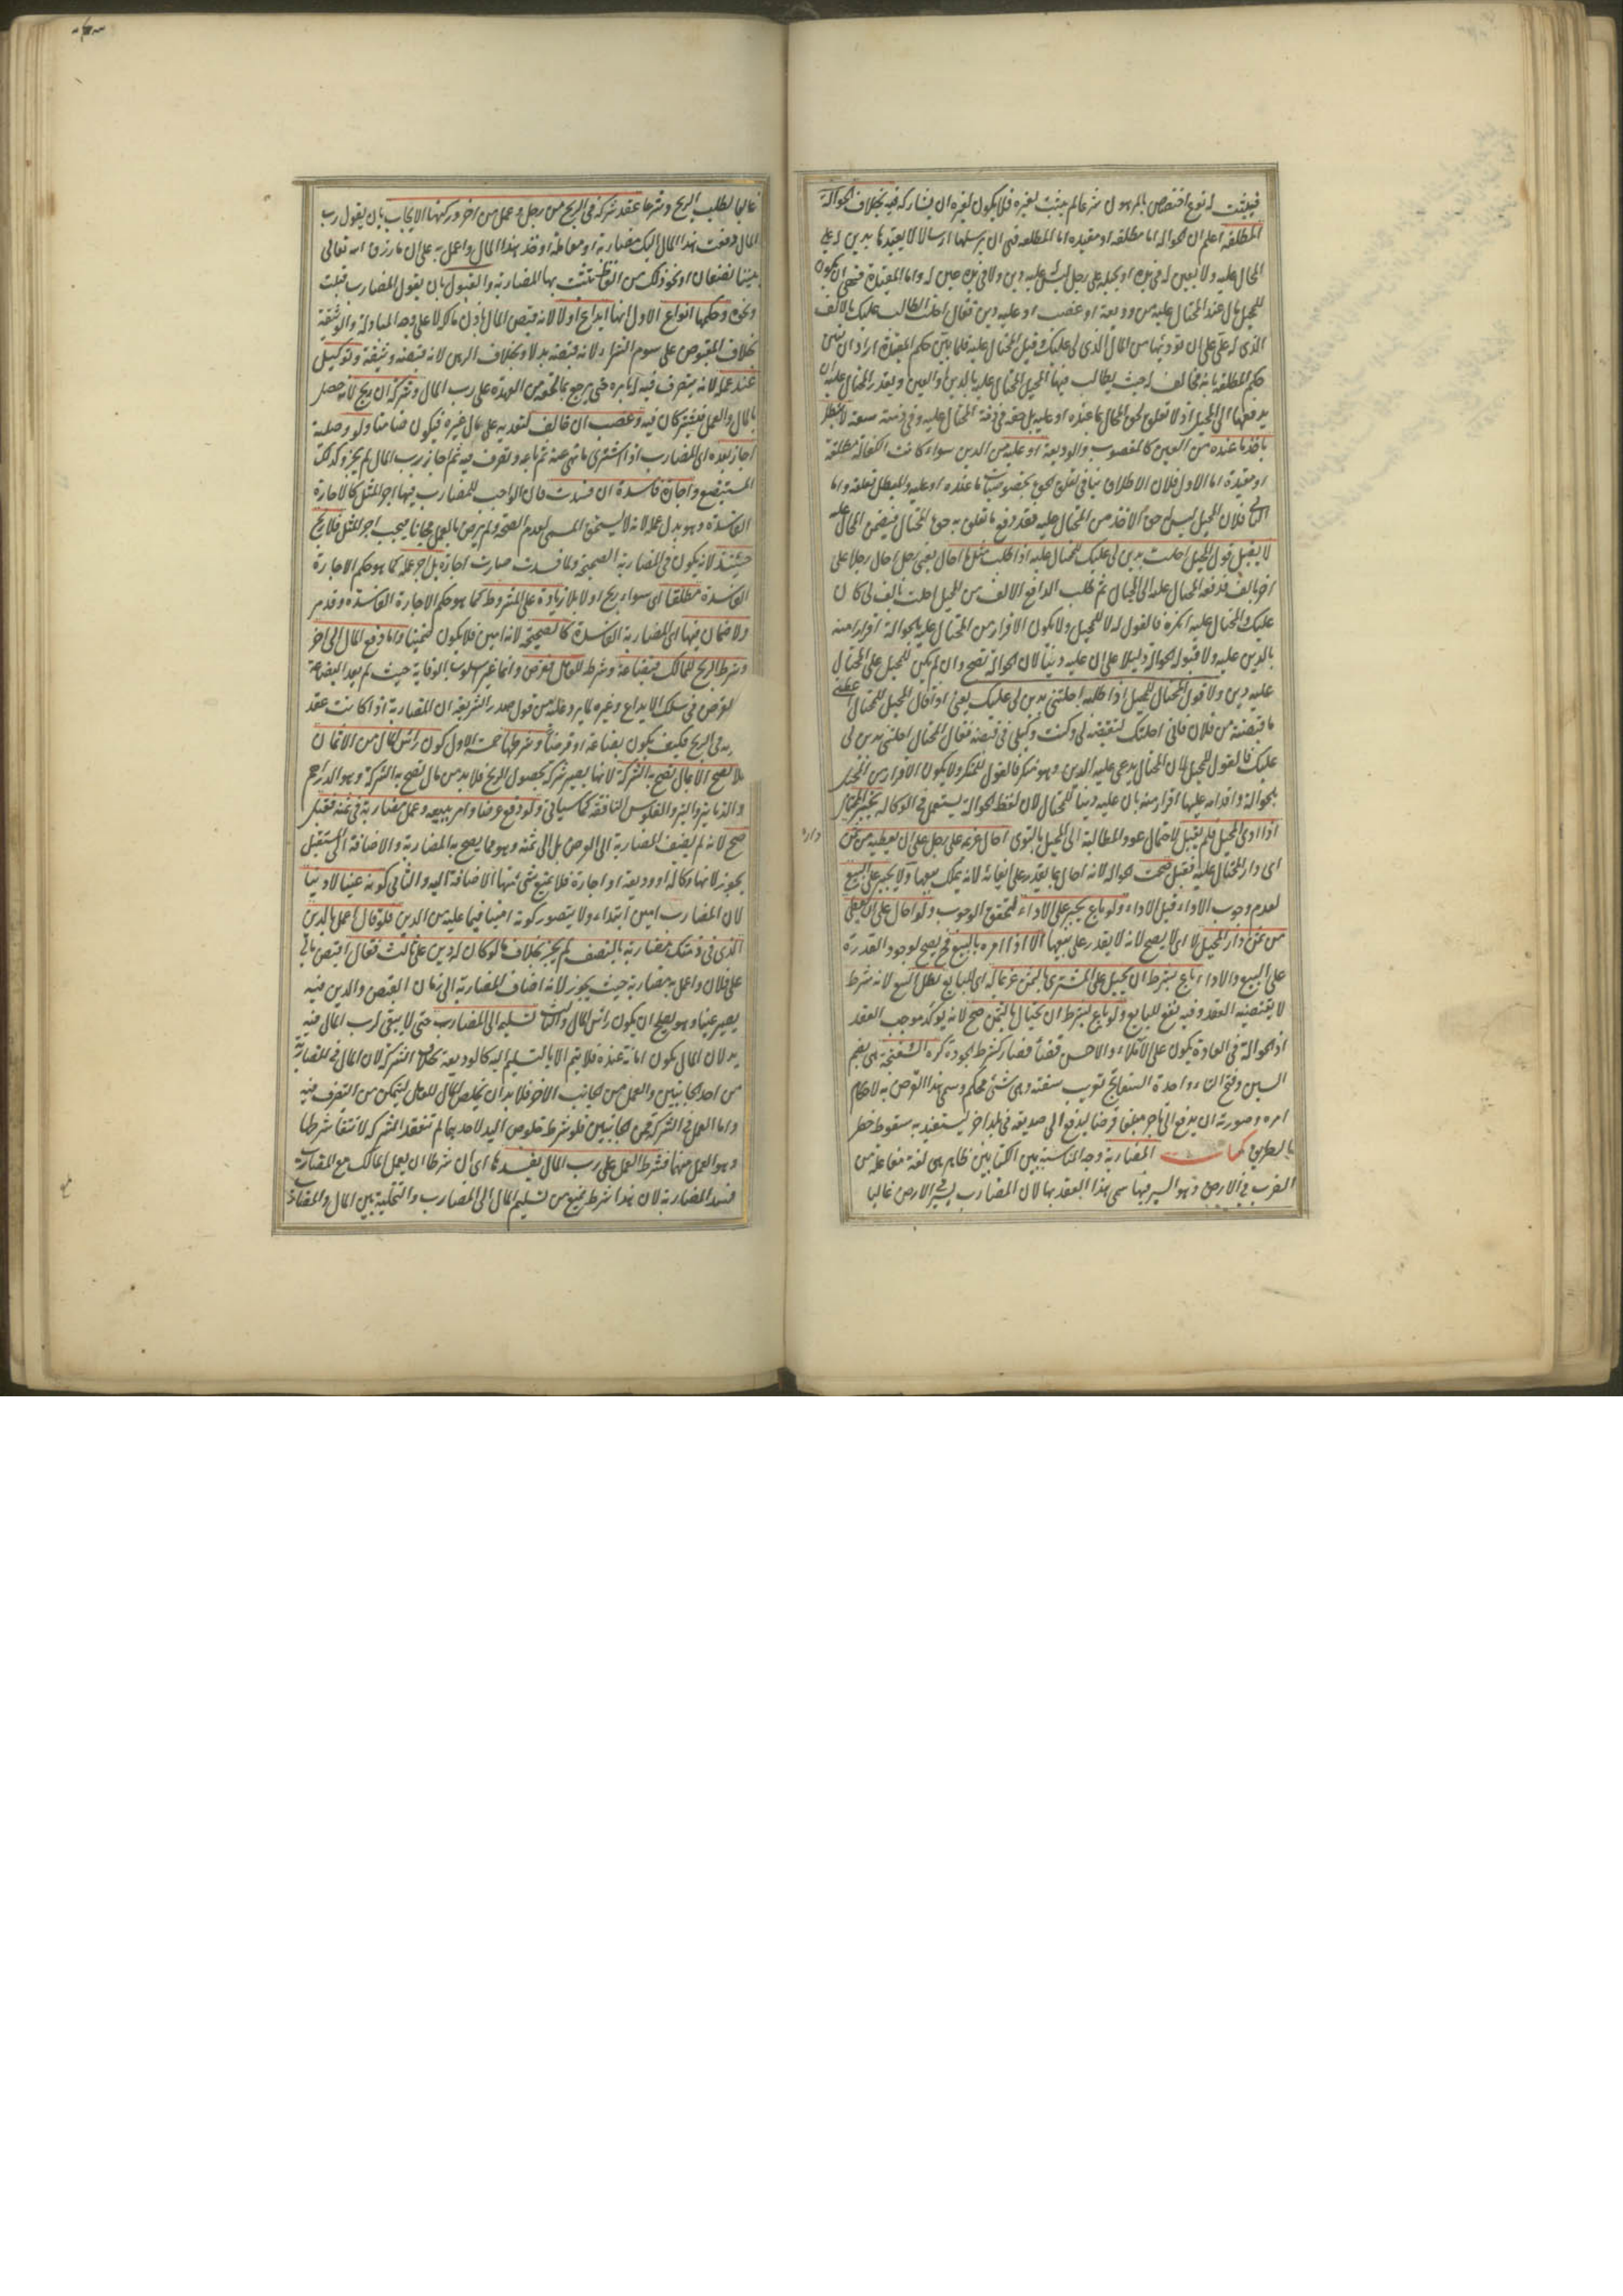 فيثبت له نوع اختصاص بالمرهون شرعا لم يثبت لغيره فلا يكون لغيره ان يشاركه فيه بخلاف الحوالة
المطلقة اعلم ان الحوالة اما مطلقة او مقيدة اما المطلقة فهي ان يرسلها ارسالا لا يقيدها بدين له على
المحال عليه ولا بعين له في يده او يحيله على رجل ليس له عليه دين ولا في يده عين له واما المقيدة فهي ان يكون
للمحيل مال عند المحتال عليه من وديعة او غصب او عليه دين فقال احلت الطالب عليك بالالف
الذي له علي على ان تؤديها من المال الذي لي عليك وقبل المحتال عليه فلما بين حكم المقيدة اراد ان يبين
حكم المطلقة بانه مخالف له حيث يطالب فيها المحيل المحتال عليه بالدين او العين ويقدر المحتال عليه ان
يدفعها الى المحيل اذ لا تعلق لحق المحال بما عنده او عليه بل حقه في ذمة المحتال عليه وفي ذمته سعة لا تبطل
باخذ ما عنده من العين كالمغصوب والوديعة او عليه من الدين سواء كانت الكفالة مطلقة
او مقيدة اما الاول فلان الاطلاق ينافي تعلق الحق بخصوصيات ما عنده او عليه ولا يبطل تعلقه واما
الثاني فلان المحيل ليس له حق الاخذ من المحتال عليه فقد دفع ما تعلق به حق المحتال فيضمن المحال عليه
لا يقبل قول المحيل احلت بدين لي عليك للمحتال عليه اذا طلب مثل ما احال يعني رجل احال رجلا على
اخر بالف فدفعه المحتال عليه الى المحتال ثم طلب الدافع الالف من المحيل احلت بالف لي كان
عليك والمحتال عليه انكره فالقول له لا للمحيل ولا يكون الاقرار من المحتال عليه بالحوالة اقرارا منه
بالدين عليه ولا قبوله الحوالة دليلا على ان عليه دينا لان الحوالة تصح وان لم يكن للمحيل على المحتال
عليه دين ولا قول المحتال للمحيل اذا طلبه احلتني بدين لي عليك يعني اذا قال المحيل للمحتال اعطني
ما قبضته من فلان فاني احلتك لتقبضه لي وكنت وكيلي في قبضه فقال المحتال احلتني بدين لي
عليك فالقول للمحيل لان المحتال يدعي عليه الدين وهو منكر فالقول للمنكر ولا يكون الاقرار من المحيل
بالحوالة واقدامه عليها اقرارا منه بان عليه دينا للمحتال لان لفظ الحوالة يستعمل في الوكالة
اذا ادى المحيل فلم يقبل لاحتمال عود المطالبة الى المحيل بالتوى احال غريمه على رجل على ان يعطيه من ثمن
دار
اى دار المحتال عليه فقبل صحت الحوالة لانه احال بما يقدر على ايفائه لانه يملك بيعها ولا يجبر على البيع
لعدم وجوب الاداء قبل الاداء ولو باع يجبر على الاداء لتحقق الوجوب ولو احال على ان يعطى
من ثمن دار المحيل لا اى لا يصح لانه لا يقدر على بيعها الا اذا امره بالبيع فح يصح لوجود القدرة
على البيع والاداء باع بشرط ان يحيل على المشترى بالثمن غريما له اى للبايع بطل البيع لانه شرط
لا يقتضيه العقد وفيه نفع للبايع ولو باع بشرط ان يحتال بالثمن صح لانه يوكد موجب العقد
اذ الحوالة في العادة يكون على الاملاء والاحسن قضاء فصار كشرط الجودة كره السفتجة هى بضم
السين وفتح التاء واحدة السفاتج تعريب سفته وهى شئ محكم وسمى هذا القرض به لاحكام
امره وصورته ان يدفع الى تاجر مبلغا قرضا ليدفع الى صديقه في بلد اخر ليستفيد به سقوط خطر
الطريق كتاب المضاربة وجه المناسبة بين الكتابين ظاهر هى لغة مفاعلة من
الضرب في الارض وهو السير فيها سمى هذا العقد بها لان المضارب يسير في الارض غالبا
غالبا لطلب الربح وشرعا عقد شركة في الربح من رجل وعمل من اخر وركنها الايجاب بان يقول رب
المال دفعت هذا المال اليك مضاربة او معاملة او خذ هذا المال واعمل به على ان ما رزق الله تعالى
بيننا نصفان او نحو ذلك من الفاظ تثبت بها المضاربة والقبول بان يقول المضارب قبلت
ونحوه وحكمها انواع الاول انها ايداع اولا لانه قبض المال باذن مالكه لا على وجه المبادلة والوثيقة
بخلاف المقبوض على سوم الشراء لانه قبضه بدلا وبخلاف الرهن لانه قبضه وثيقة وتوكيل
عند عمله لانه يتصرف فيه له بامره حتى يرجع بما لحقه من العهدة على رب المال وشركة ان ربح لانه حصل
بالمال والعمل فيشتركان فيه وغصب ان خالف لتعديه على مال غيره فيكون ضامنا ولو وصلية
اجاز بعده اى المضارب اذا اشترى ما نهى عنه ثم باعه وتصرف فيه ثم اجاز رب المال لم يجز وكذلك
المستبضع واجارة فاسدة ان فسدت فان الواجب للمضارب فيها اجر المثل كالاجارة
الفاسدة وهو بدل عمله لانه لا يستحق المسمى لعدم الصحة ولم يرض بالعمل مجانا فيجب اجر المثل فلا ربح
حينئذ لانه يكون في المضاربة الصحيحة ولما فسدت صارت اجارة بل اجر عمله كما هو حكم الاجارة
الفاسدة مطلقا اى سواء ربح او لا بلا زيادة على المشروط كما هو حكم الاجارة الفاسدة وقد مر
ولا ضمان فيها اى المضاربة الفاسدة كالصحيحة لانه امين فلا يكون ضمينا واما دفع المال الى اخر
وشرط الربح للمالك فبضاعة وشرط للعامل فقرض وانما غير اسلوب الوقاية حيث لم يعد البضاعة
لقرض في سلك الايداع وغيره لما يرد عليه من قول صدر الشريعة ان المضاربة اذا كانت عقد
به في الربح فكيف يكون بضاعة او قرضا وشرطها خمسة الاول كون راس المال من الاثمان
لا تصح الا بمال تصح به الشركة لانها يصير شركة بحصول الربح فلا بد من مال تصح به الشركة وهو الدراهم
والدنانير والتبر والفلوس النافقة كما سياتى ولو دفع عرضا وامر ببيعه وعمل مضاربة في ثمنه فقبل
صح لانه لم يضف المضاربة الى العرض بل الى ثمنه وهو مما يصح به المضاربة والاضافة الى المستقبل
يجوز لانها وكالة او وديعة او اجارة فلا يمنع شئ منها الاضافة اليه والثانى كونه عينا لا دينا
لان المضارب امين ابتداء ولا يتصور كونه امينا فيما عليه من الدين فلو قال اعمل بالدين
الذى في ذمتك مضاربة بالنصف لم يجز بخلاف ما لو كان له دين على ثالث فقال اقبض مالى
على فلان واعمل به مضاربة حيث يجوز لانه اضاف المضاربة الى زمان القبض والدين فيه
يصير عينا وهو يصلح ان يكون راس المال والثالث تسليمه الى المضارب حتى لا يبقى لرب المال فيه
يد لان المال يكون امانة عنده فلا يتم الا بالتسليم اليه كالوديعة بخلاف الشركة لان المال في المضاربة
من احد الجانبين والعمل من الجانب الاخر فلا بد ان يخلص المال للعامل ليتمكن من التصرف فيه
واما العمل في الشركة فمن الجانبين فلو شرط خلوص اليد لاحدهما لم تنعقد الشركة لانتفاء شرطها
وهو العمل منهما فشرط العمل على رب المال يفسدها اى ان شرطا ان يعمل المالك مع المضارب
فسد المضاربة لان هذا شرط يمنع من تسليم المال الى المضارب والتخلية بين المال والمضارب